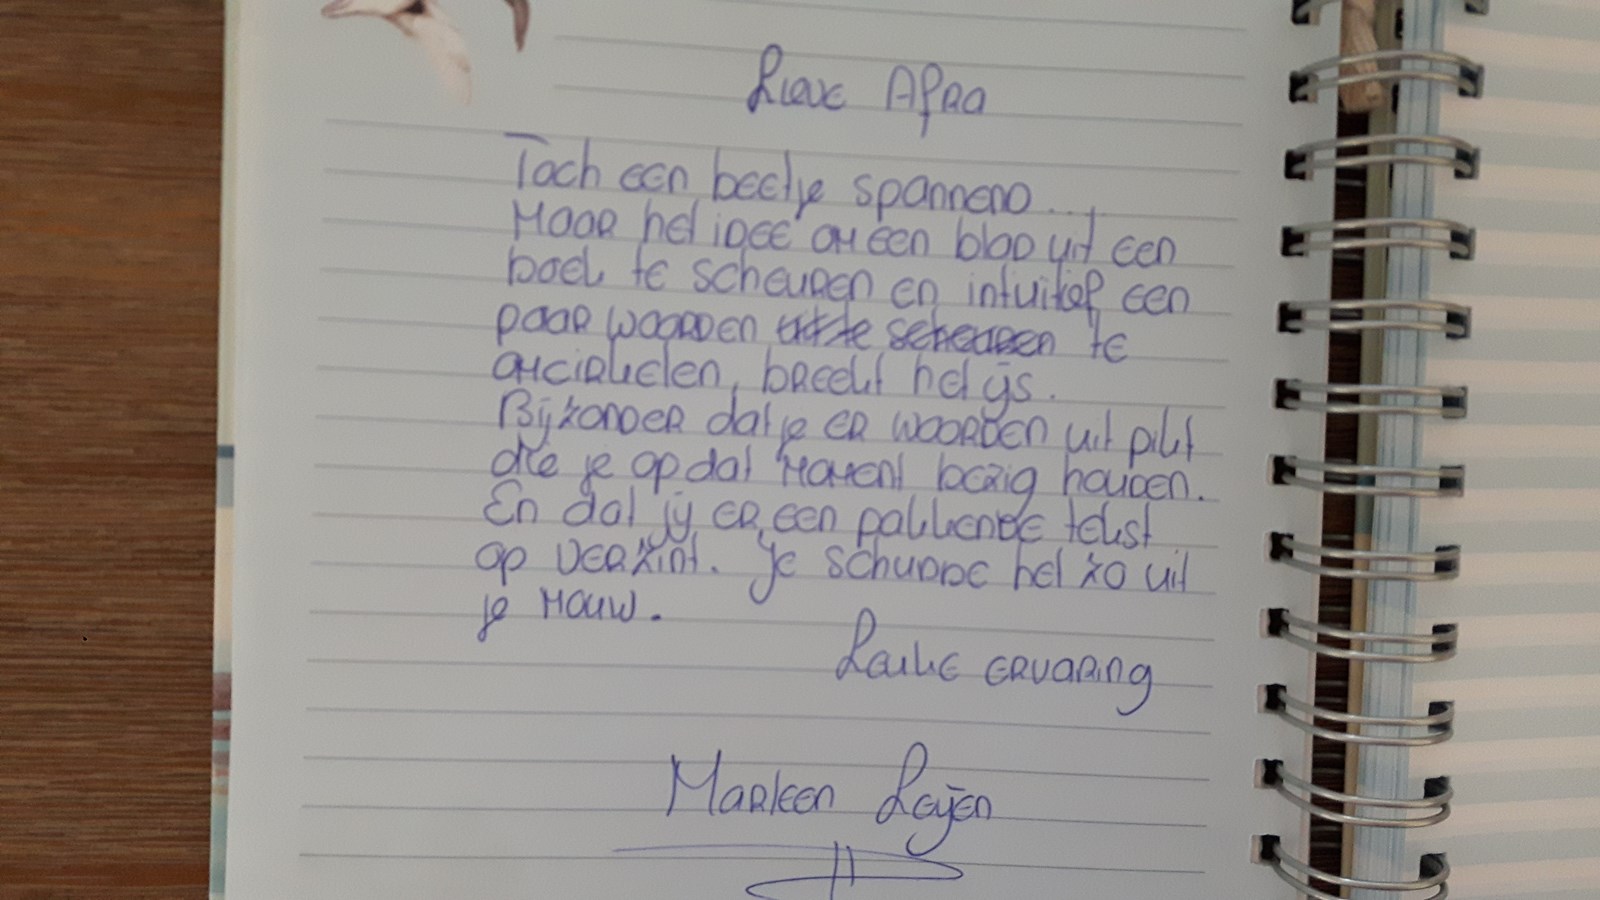 Lieve Afra
Toch een beetje spannend...,
Maar het idee om een blad uit een
boek te scheuren en intuitief een
paar woorden uit te scheuren te
omcirkelen, breekt het ijs.
Bijzonder dat je er woorden uit pikt
die je op dat moment bezig houden.
En dat jij er een pakkende tekst
op verzint. Je schudde het zo uit
je mouw.
Leuke ervaring
Marleen Leijen